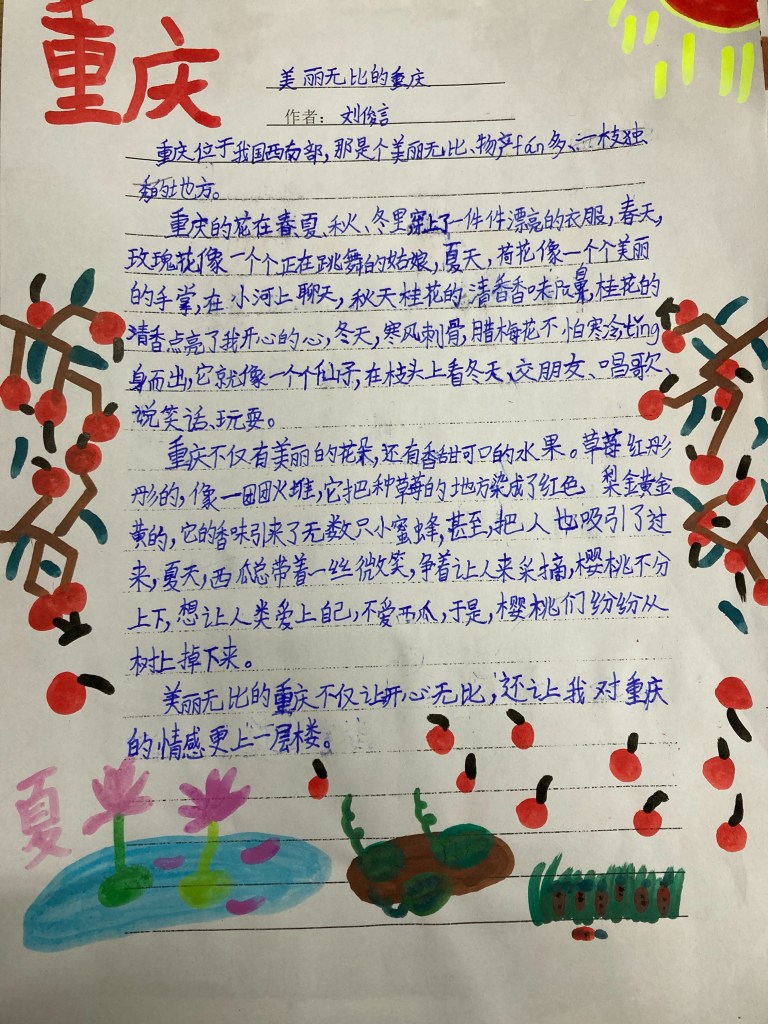 重庆
美丽无比的重庆
作者：刘俊言
重庆位于我国西南部，那是个美丽无比、物产fán多、一枝独
秀的地方。
重庆的花在春、夏、秋、冬里穿上了一件件漂亮的衣服，春天，
玫瑰花像一个个正在跳舞的姑娘，夏天，荷花像一个个美丽
的手掌，在小河上聊天，秋天桂花的清香香味扑鼻，桂花的
清香点亮了我开心的心，冬天，寒风刺骨，腊梅花不怕寒冷，tǐng
身而出，它就像一个个仙子，在枝头上看冬天、交朋友、唱歌、
说笑话、玩耍。
重庆不仅有美丽的花朵，还有香甜可口的水果。草莓红彤
彤的，像一团团火堆，它把种草莓的地方染成了红色，梨金黄金
黄的，它的香味引来了无数只小蜜蜂，甚至，把人也吸引了过
来，夏天，西瓜总带着一丝微笑，争着让人来采摘，樱桃不分
上下，想让人类爱上自己，不爱西瓜，于是，樱桃们纷纷从
树上掉下来。
美丽无比的重庆不仅让开心无比，还让我对重庆
的情感更上一层楼。
夏